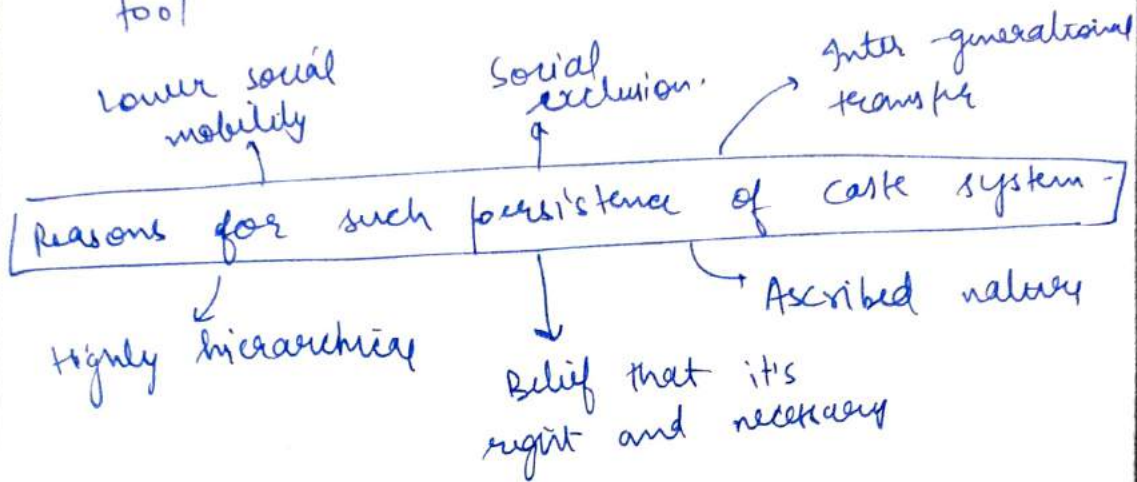 tool
Lower social
mobility
Social
exclusion.
Inter-generational
transfer
Reasons for such persistence of caste system-
Highly hierarchical
Belief that it's
right and necessary
Ascribed nature